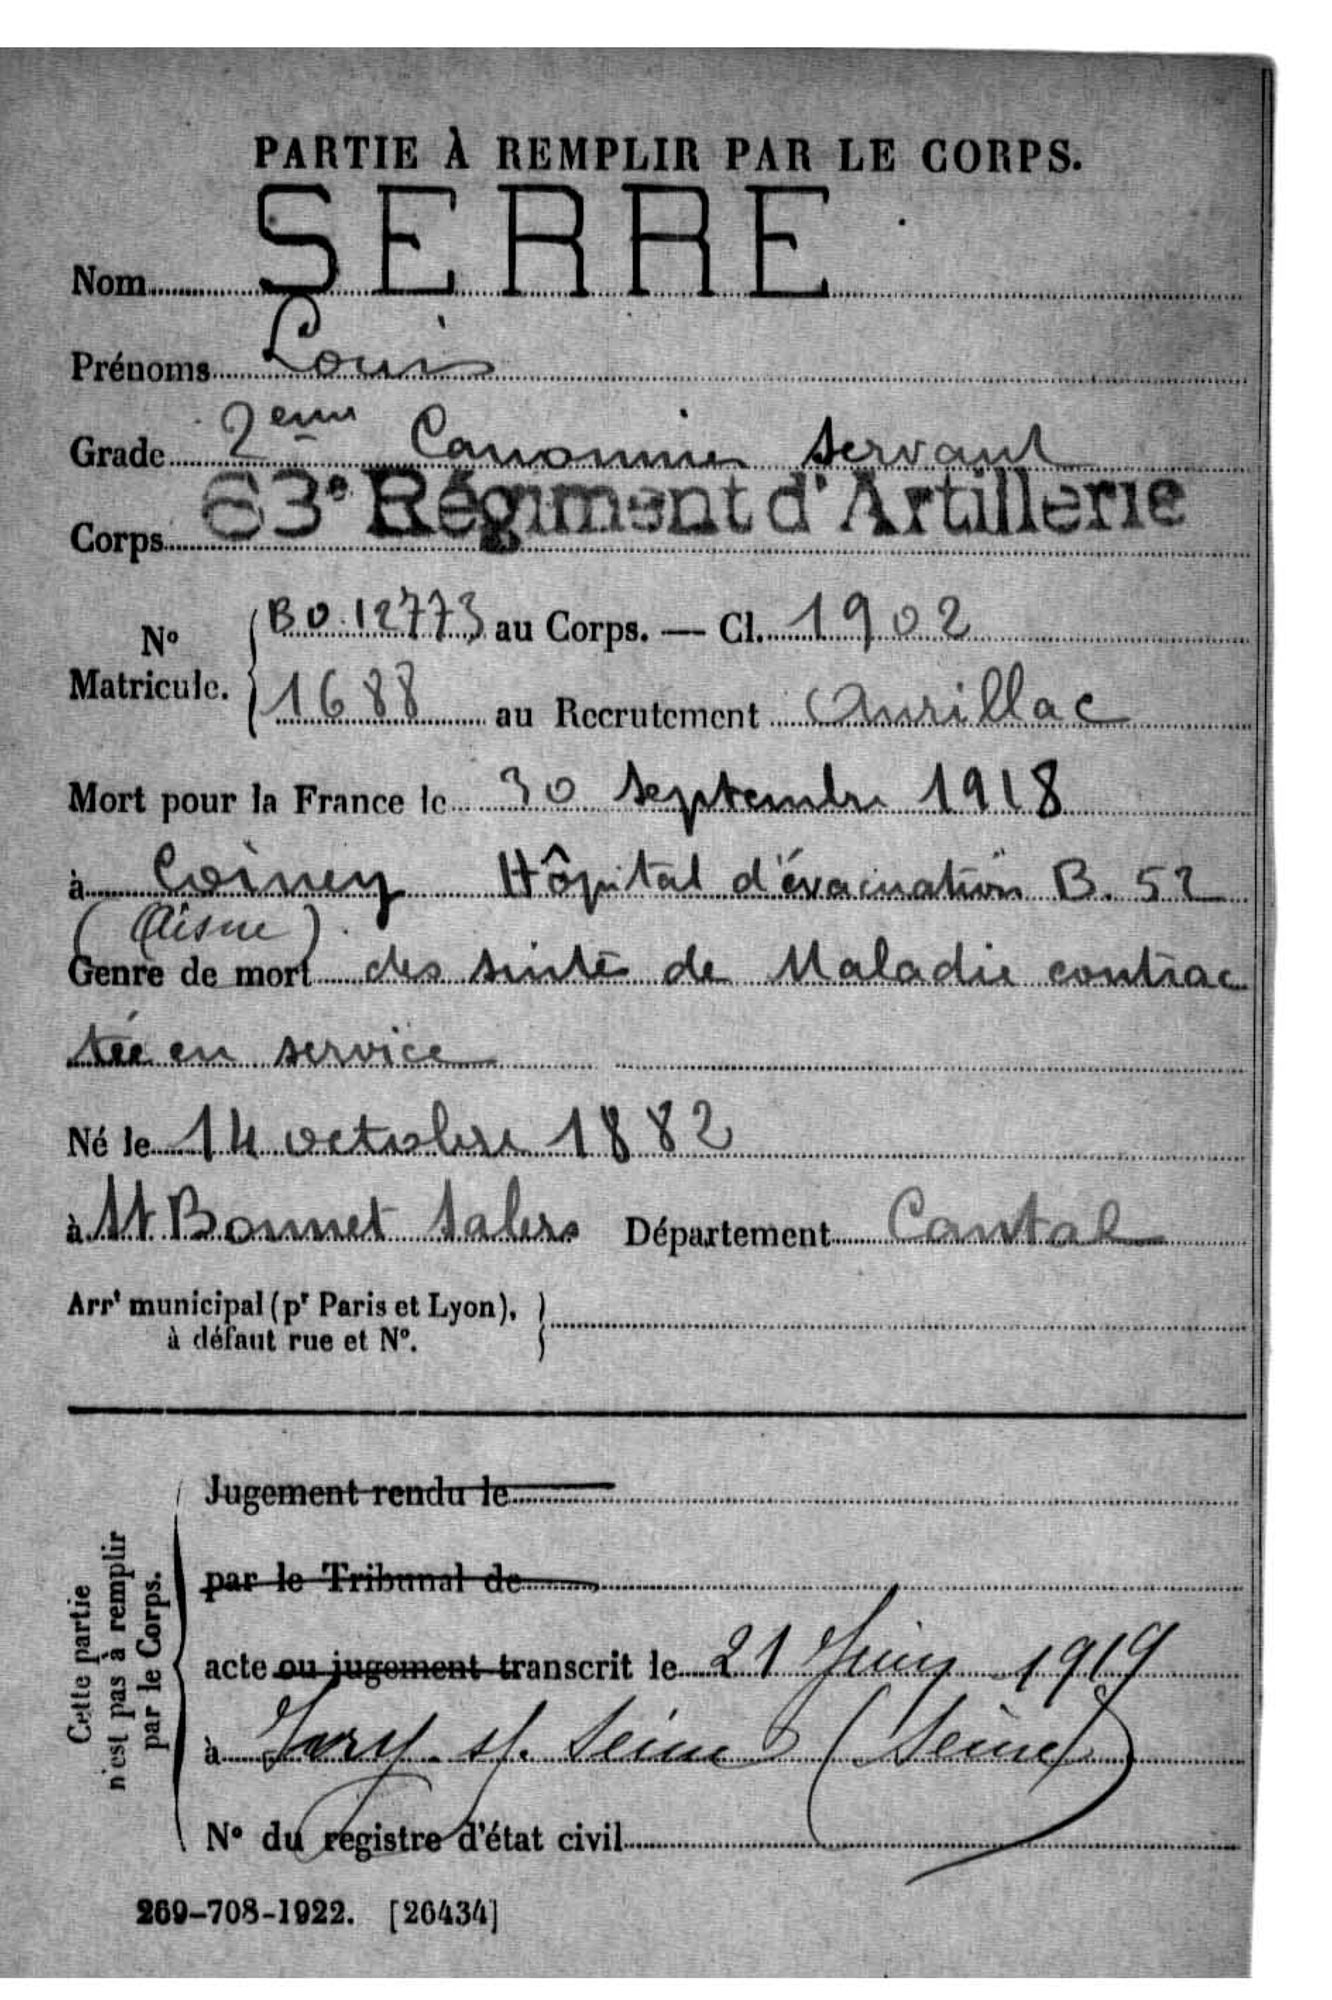 PARTIE À REMPLIR PAR LE CORPS.
Nom SERRE
Prénoms Louis
Grade 2eme Canonnier servant
Corps 63e Régiment d'Artillerie
N° Matricule. { B0.12773 au Corps. — Cl. 1902
1688 au Recrutement Aurillac
Mort pour la France le 30 septembre 1918
à Coincy Hôpital d'évacuation B. 52
(Aisne)
Genre de mort des suites de Maladie contrac
tée en service
Né le 14 octobre 1882
à St Bonnet Salers Département Cantal
Arrt municipal (pr Paris et Lyon), }
à défaut rue et N°.
Cette partie
n'est pas à remplir
par le Corps.
Jugement rendu le
par le Tribunal de
acte ou jugement transcrit le 21 Juin 1919
à Ivry s/. Seine (Seine)
N° du registre d'état civil
269-708-1922. [26434]